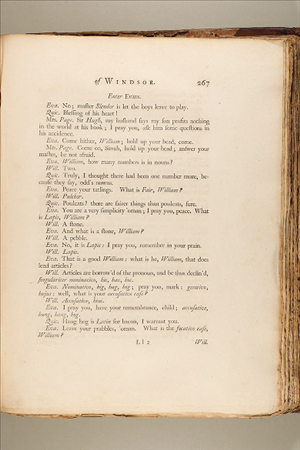 of WINDSOR. 267
Enter Evans.
Eva. No; master Slender is let the boys leave to play.
Quic. Blessing of his heart!
Mrs. Page. Sir Hugh, my husband says my son profits nothing
in the world at his book; I pray you, ask him some questions in
his accidence.
Eva. Come hither, William; hold up your head, come.
Mrs. Page. Come on, sirrah, hold up your head; answer your
master, be not afraid.
Eva. William, how many numbers is in nouns?
Will. Two.
Quic. Truly, I thought there had been one number more, be-
cause they say, odd's nouns.
Eva. Peace your tatlings. What is Fair, William?
Will. Pulcher.
Quic. Poulcats! there are fairer things than poulcats, sure.
Eva. You are a very simplicity 'oman; I pray you, peace. What
is Lapis, William?
Will. A stone.
Eva. And what is a stone, William?
Will. A pebble.
Eva. No, it is Lapis: I pray you, remember in your prain.
Will. Lapis.
Eva. That is a good William: what is he, William, that does
lend articles?
Will. Articles are borrow'd of the pronoun, and be thus declin'd,
singulariter nominativo, hic, hæc, hoc.
Eva. Nominativo, hig, hag, hog; pray you, mark: genitivo,
hujus: well, what is your accusative case?
Will. Accusativo, hinc.
Eva. I pray you, have your remembrance, child; accusativo,
hung, hang, hog.
Quic. Hang hog is Latin for bacon, I warrant you.
Eva. Leave your prabbles, 'oman. What is the focative case,
William?
L l 2 Will.